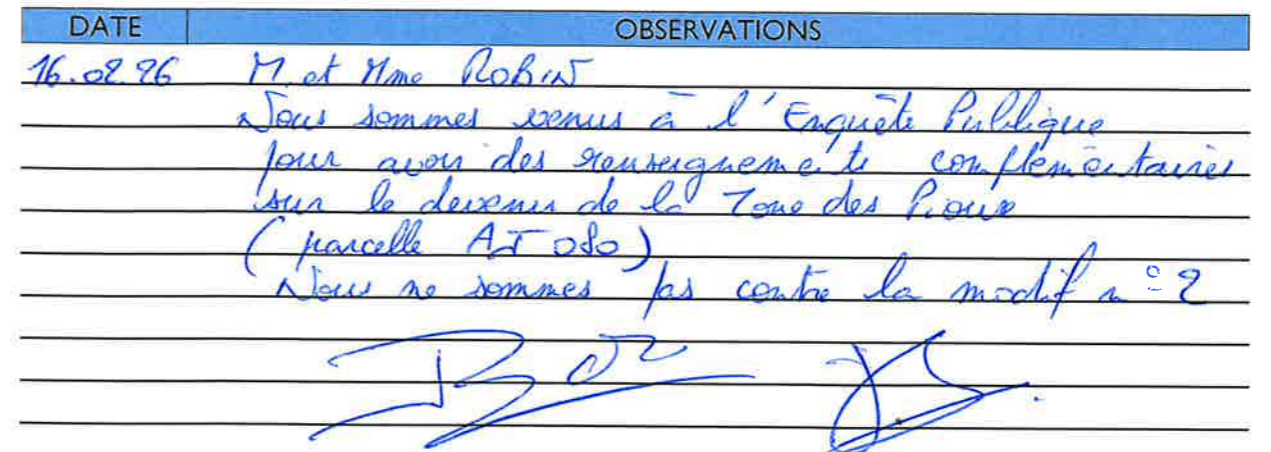 DATE OBSERVATIONS
16.02.26 M et Mme ROBIN
Nous sommes venus à l'Enquête Publique
pour avoir des renseignements complémentaires
sur le devenir de la Zone des
(parcelle AJ 080)
Nous ne sommes pas contre la modif n° 2